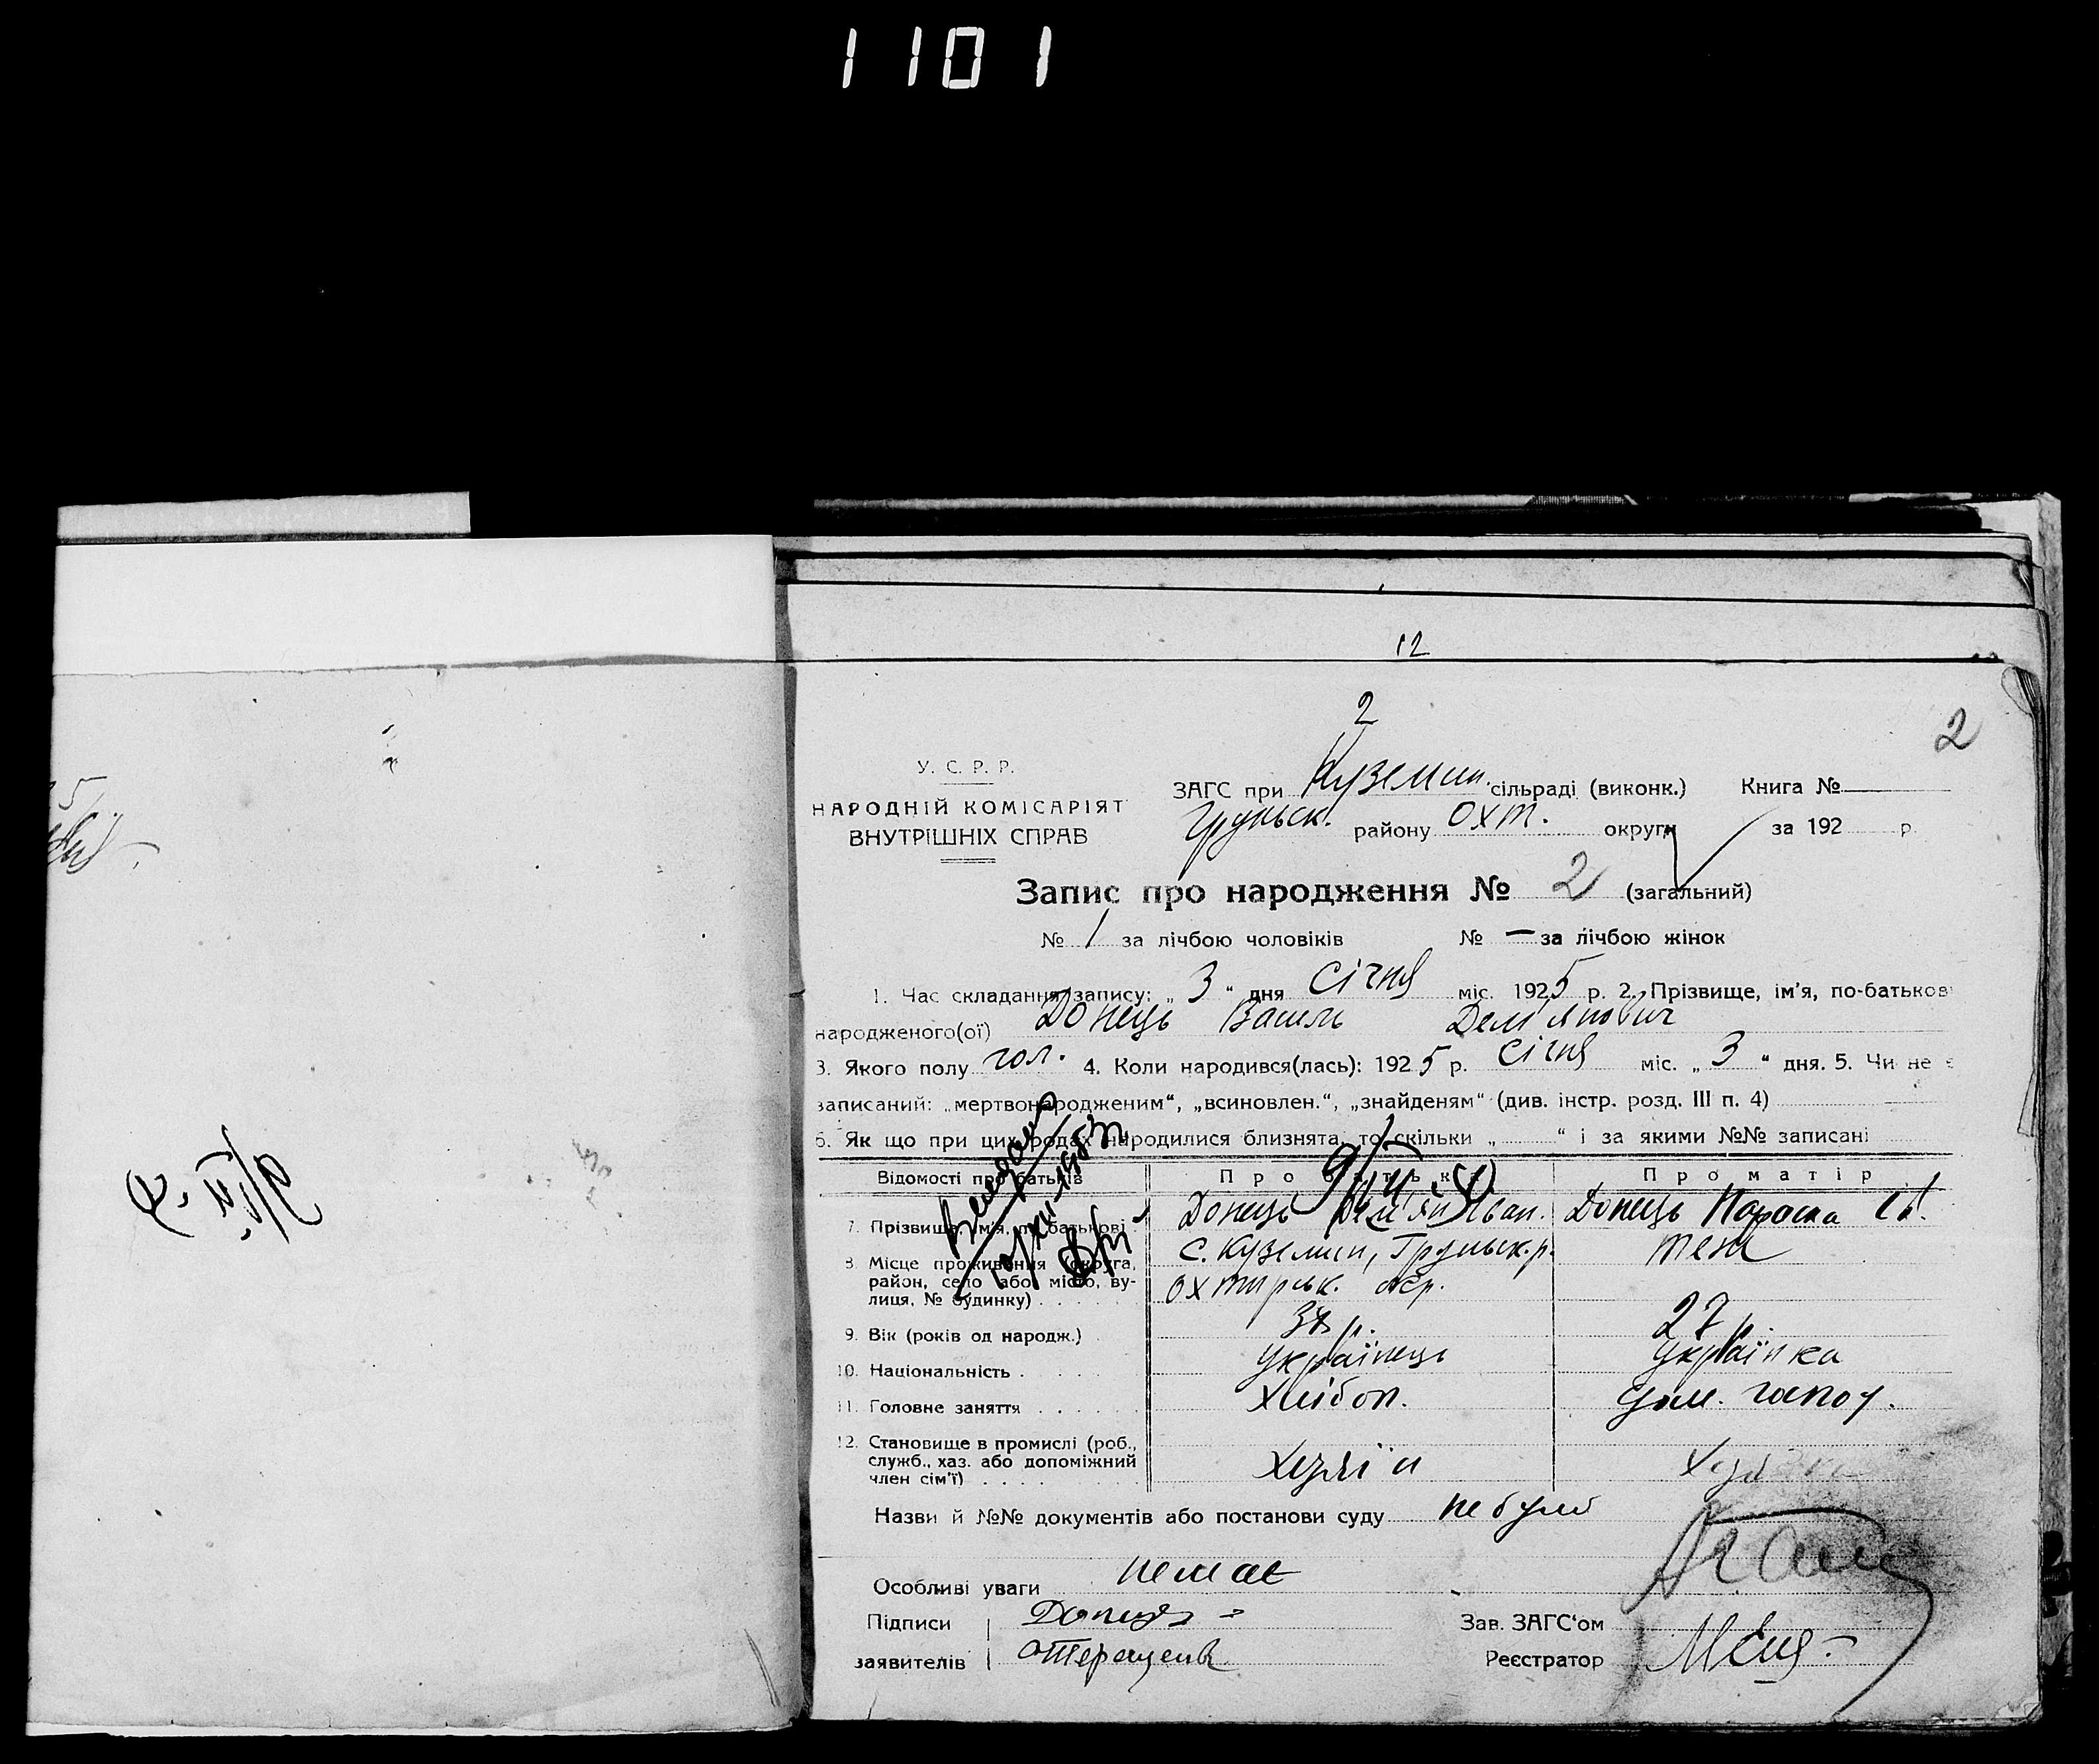 1101
12
2
2
У. С. Р. Р.
НАРОДНІЙ КОМІСАРІЯТ
ВНУТРІШНІХ СПРАВ
ЗАГС при Куземин. сільраді (виконк.) Книга №
Груньск. району Охт. округи за 192 р.
Запис про народження № 2 (загальний)
№ 1 за лічбою чоловіків № — за лічбою жінок
1. Час складання запису: „ 3 “ дня Січня міс. 1925 р. 2. Прізвище, ім’я, по-батькові
народженого(ої) Донець Василь Дем'янович
3. Якого полу чол. 4. Коли народився(лась): 1925 р. Січня міс. „ 3 “ дня. 5. Чи не є
записаний: „мертвонародженим“, „всиновлен.“, „знайденям“ (див. інстр. розд. III п. 4)
6. Як що при цих родах народилися близнята, то скільки „ “ і за якими №№ записані
Відомості про батьків Про батька Про матір
7. Прізвище, ім’я, по-батькові Донець Дем'ян Іван. Донець Параска
8. Місце проживання (округа, с. Куземин, Груньск. р. теж
район, село або місто, ву- Охтирськ. окр.
лиця, № будинку)
9. Вік (років од народж.) р. 27 р.
10. Національність Українець Українка
11. Головне заняття Хлібоп. дом. господ.
12. Становище в промислі (роб.,
служб., хаз. або допоміжний Хазяїн
член сім’ї)
Назви й №№ документів або постанови суду не було
Особливі уваги немає
Підписи Донець
Зав. ЗАГС‘ом
заявителів Терещенк
Реєстратор